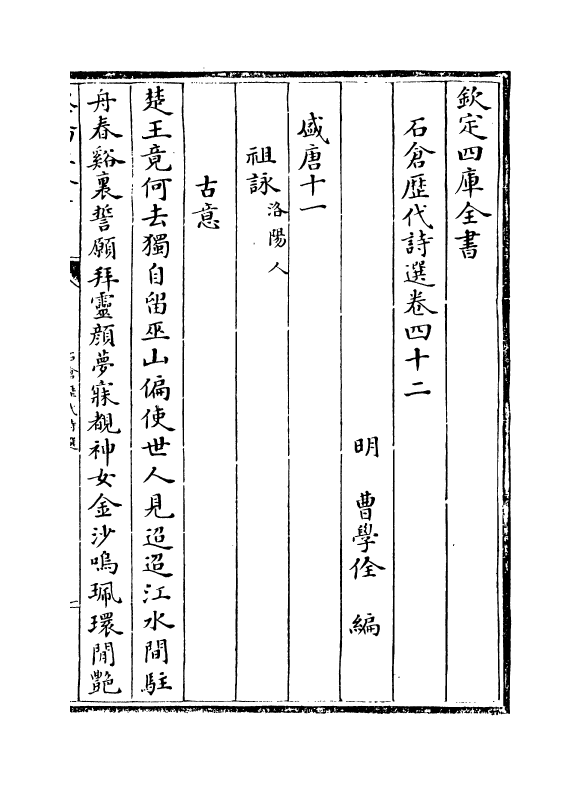 欽定四庫全書
石倉歴代詩選卷四十二
明 曹學佺 編
盛唐十一
祖詠洛陽人
古意
楚王竟何去獨自留巫山偏使世人見迢迢江水間駐
舟春谿裏誓願拜靈顔夢寐覩神女金沙鳴珮環閒艷
石倉歴代詩選